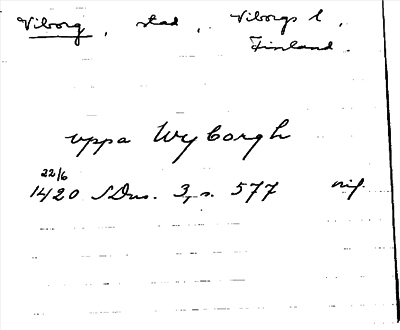 Viborg, stad, Viborgs l,
Finland.
uppa Wyborgh
22/6
1420 SDns. 3, s. 577